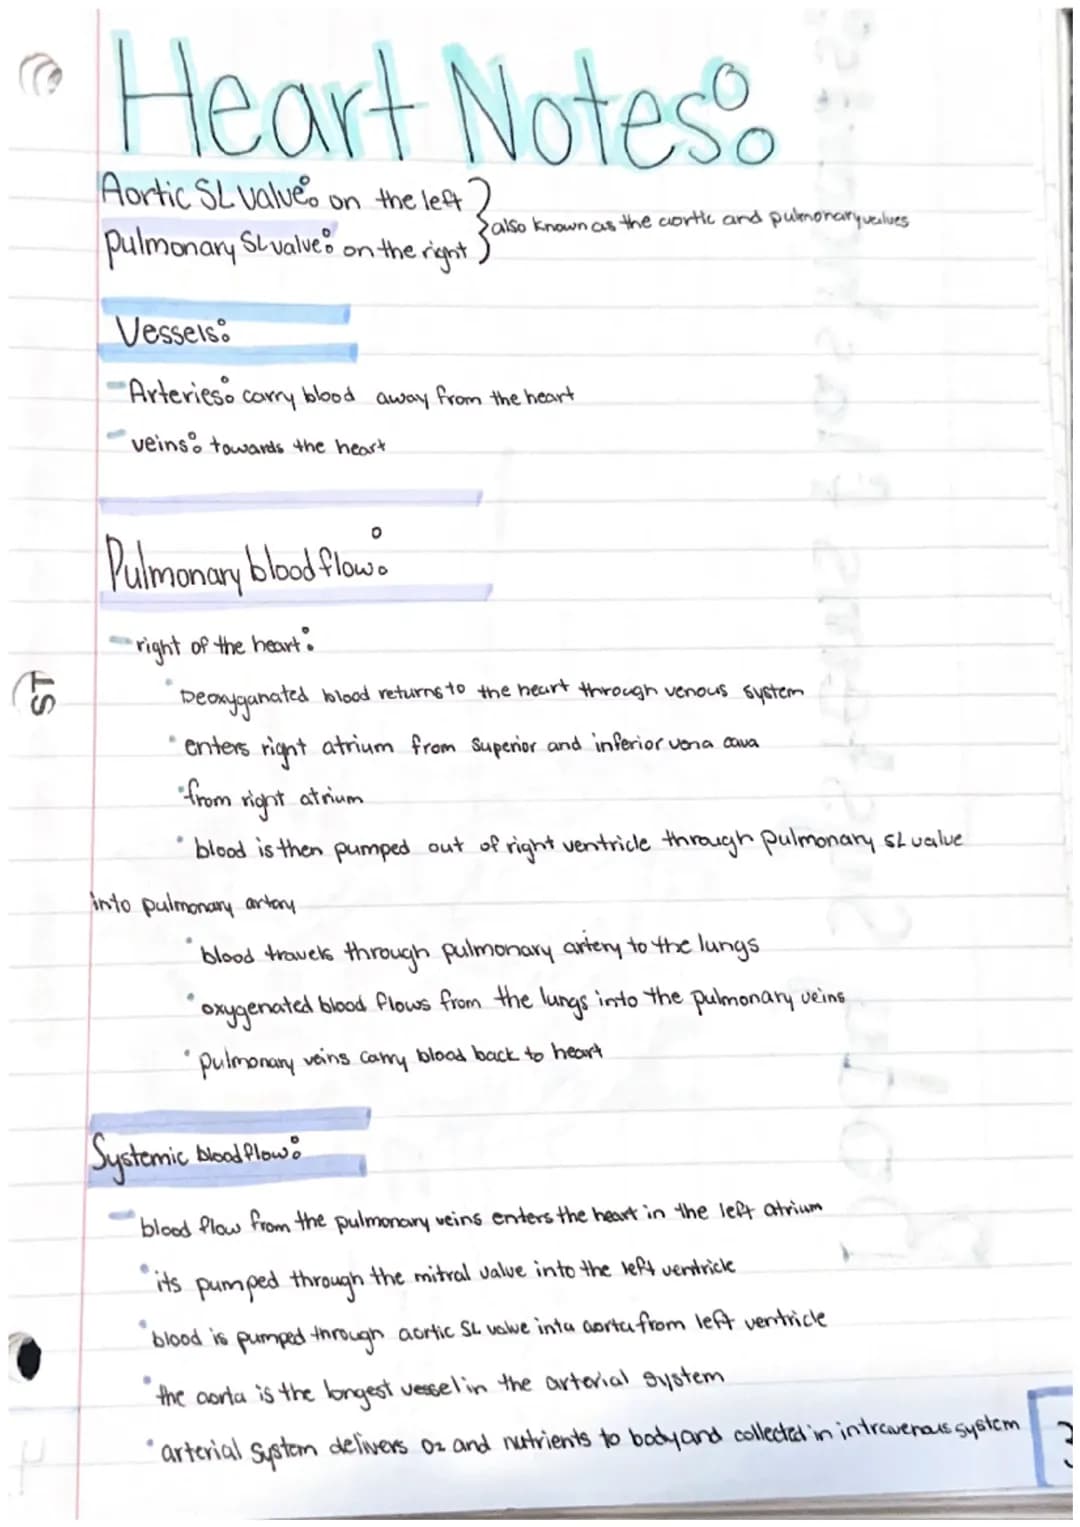 Heart Notes:
Aortic SL valve: on the left
also known as the aortic and pulmonary valves
Pulmonary SL valve: on the right
Vessels:
- Arteries: carry blood away from the heart
- veins: towards the heart
Pulmonary blood flow:
- right of the heart:
• Deoxyganated blood returns to the heart through venous system
• enters right atrium from Superior and inferior vena cava
• from right atrium
• blood is then pumped out of right ventricle through pulmonary SL valve
into pulmonary artery
• blood travels through pulmonary artery to the lungs
• oxygenated blood flows from the lungs into the pulmonary veins
• pulmonary veins carry blood back to heart
Systemic blood flow:
- blood flow from the pulmonary veins enters the heart in the left atrium
• its pumped through the mitral valve into the left ventricle
• blood is pumped through aortic SL valve into aorta from left ventricle
• the aorta is the longest vessel in the arterial system
• arterial system delivers O2 and nutrients to body and collected in intravenous system